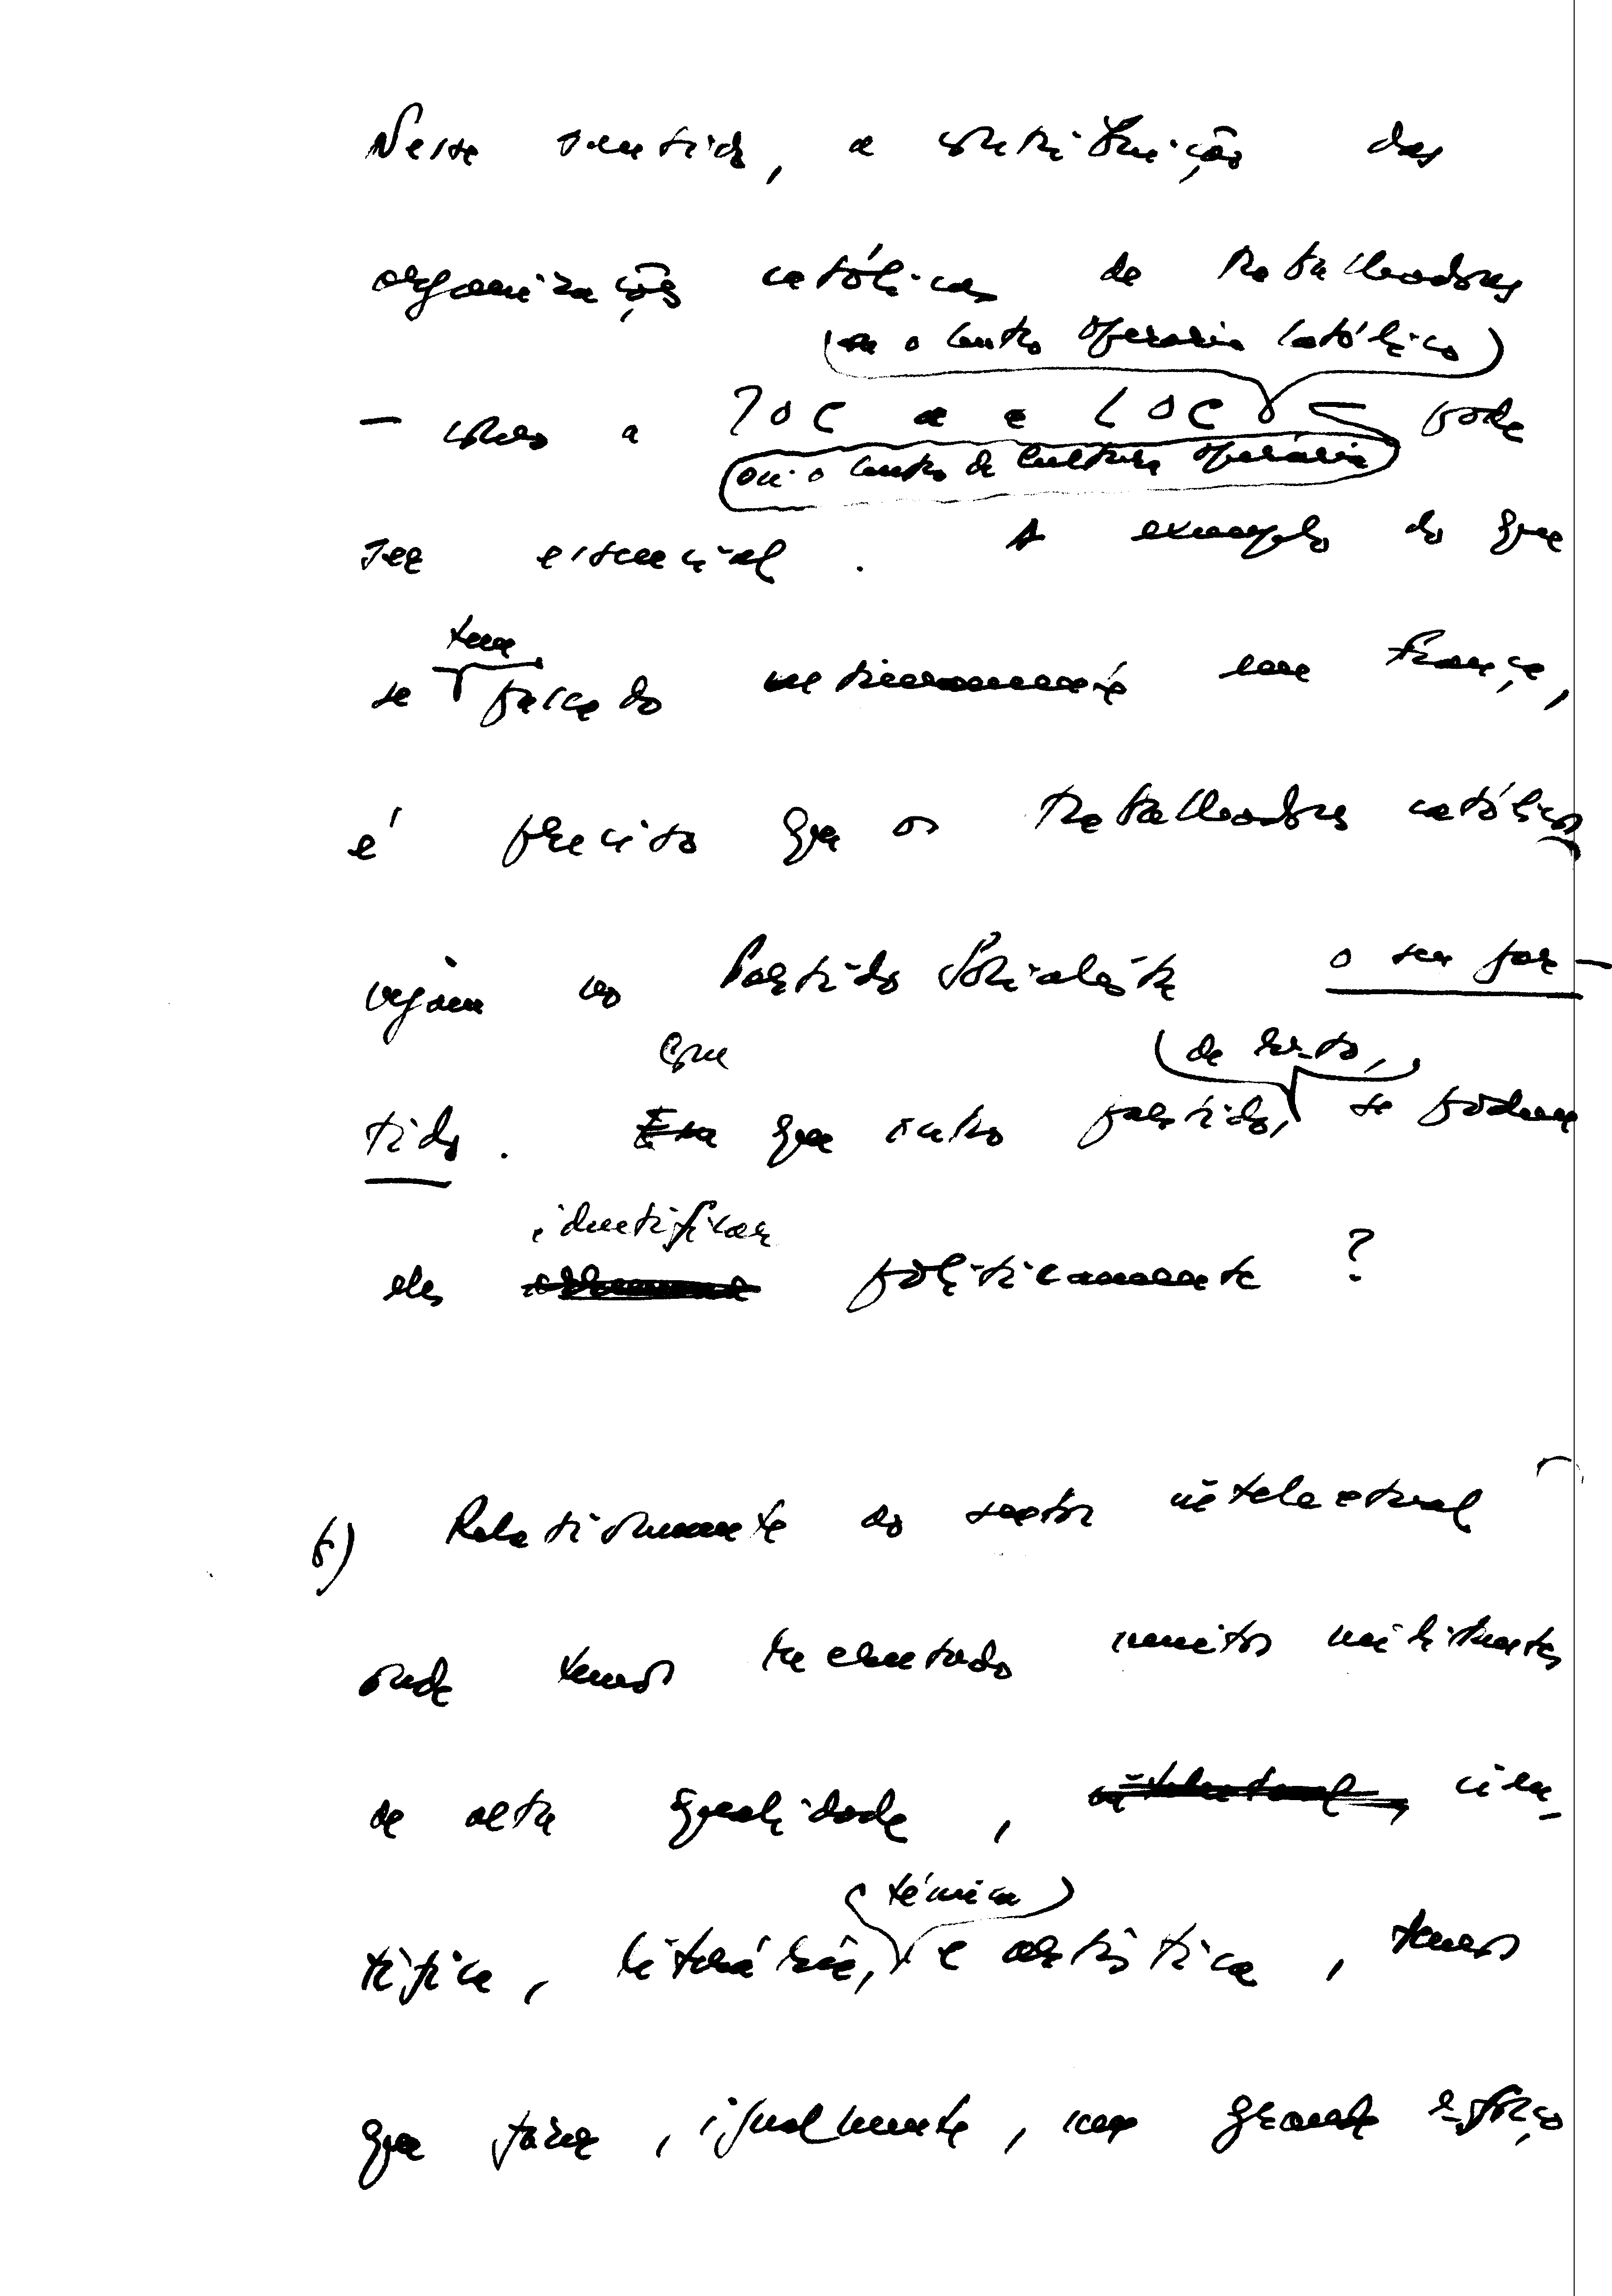 Nesse sentido, a contribuição das
organizações católicas de trabalhadores
(ou o Centro Operário Católico)
— como a JOC e a LOC — pode
(ou o Centro de Cultura Operária)
ser essencial. A exemplo do que
tem
se passado ultimamente em França,
é preciso que os trabalhadores católicos
vejam no Partido Socialista o seu par-
Com (de resto,
tido. Em que outro partido, se podem
identificar
eles politicamente ?
f) Relativamente ao sector intelectual
onde temos recrutado muitos militantes
de alta qualidade, intelectual, cien-
(técnica)
tífica, literária, e artística, temos
que fazer, igualmente, um grande esforço